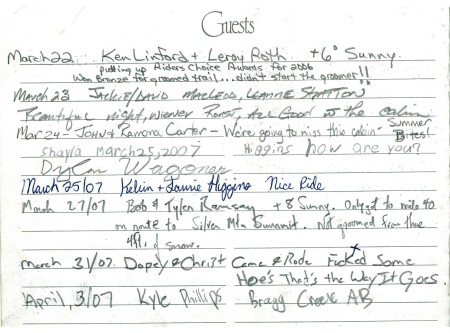 Guests
March 22 Ken Linford + Leroy Roth +6° Sunny.
putting up Riders Choice Awards for 2006
Won Bronze for groomed trail... didn't start the groomer!!
March 23 Jackie/David MacLeod, Leanne Stratton
Beautiful night, wiener Roast, All Good at the cabin
Mar 24 John & Ramona Carter - We're going to miss this cabin - Summer Bites!
Shayla March 25, 2007 Higgins how are you?
Dylan Wagoner
March 25/07 Kelvin + Laurie Higgins Nice Ride
March 27/07 Bob & Tyler Ramsay +8 Sunny. Only got to mile 40
on route to Silver Mtn Summit. Not groomed from there
4ft. of snow.
March 31/07 Dopey & Christ Came & Rode Fucked Some
Hoe's That's the Way It Goes
April, 3/07 Kyle Phillips Bragg Creek AB